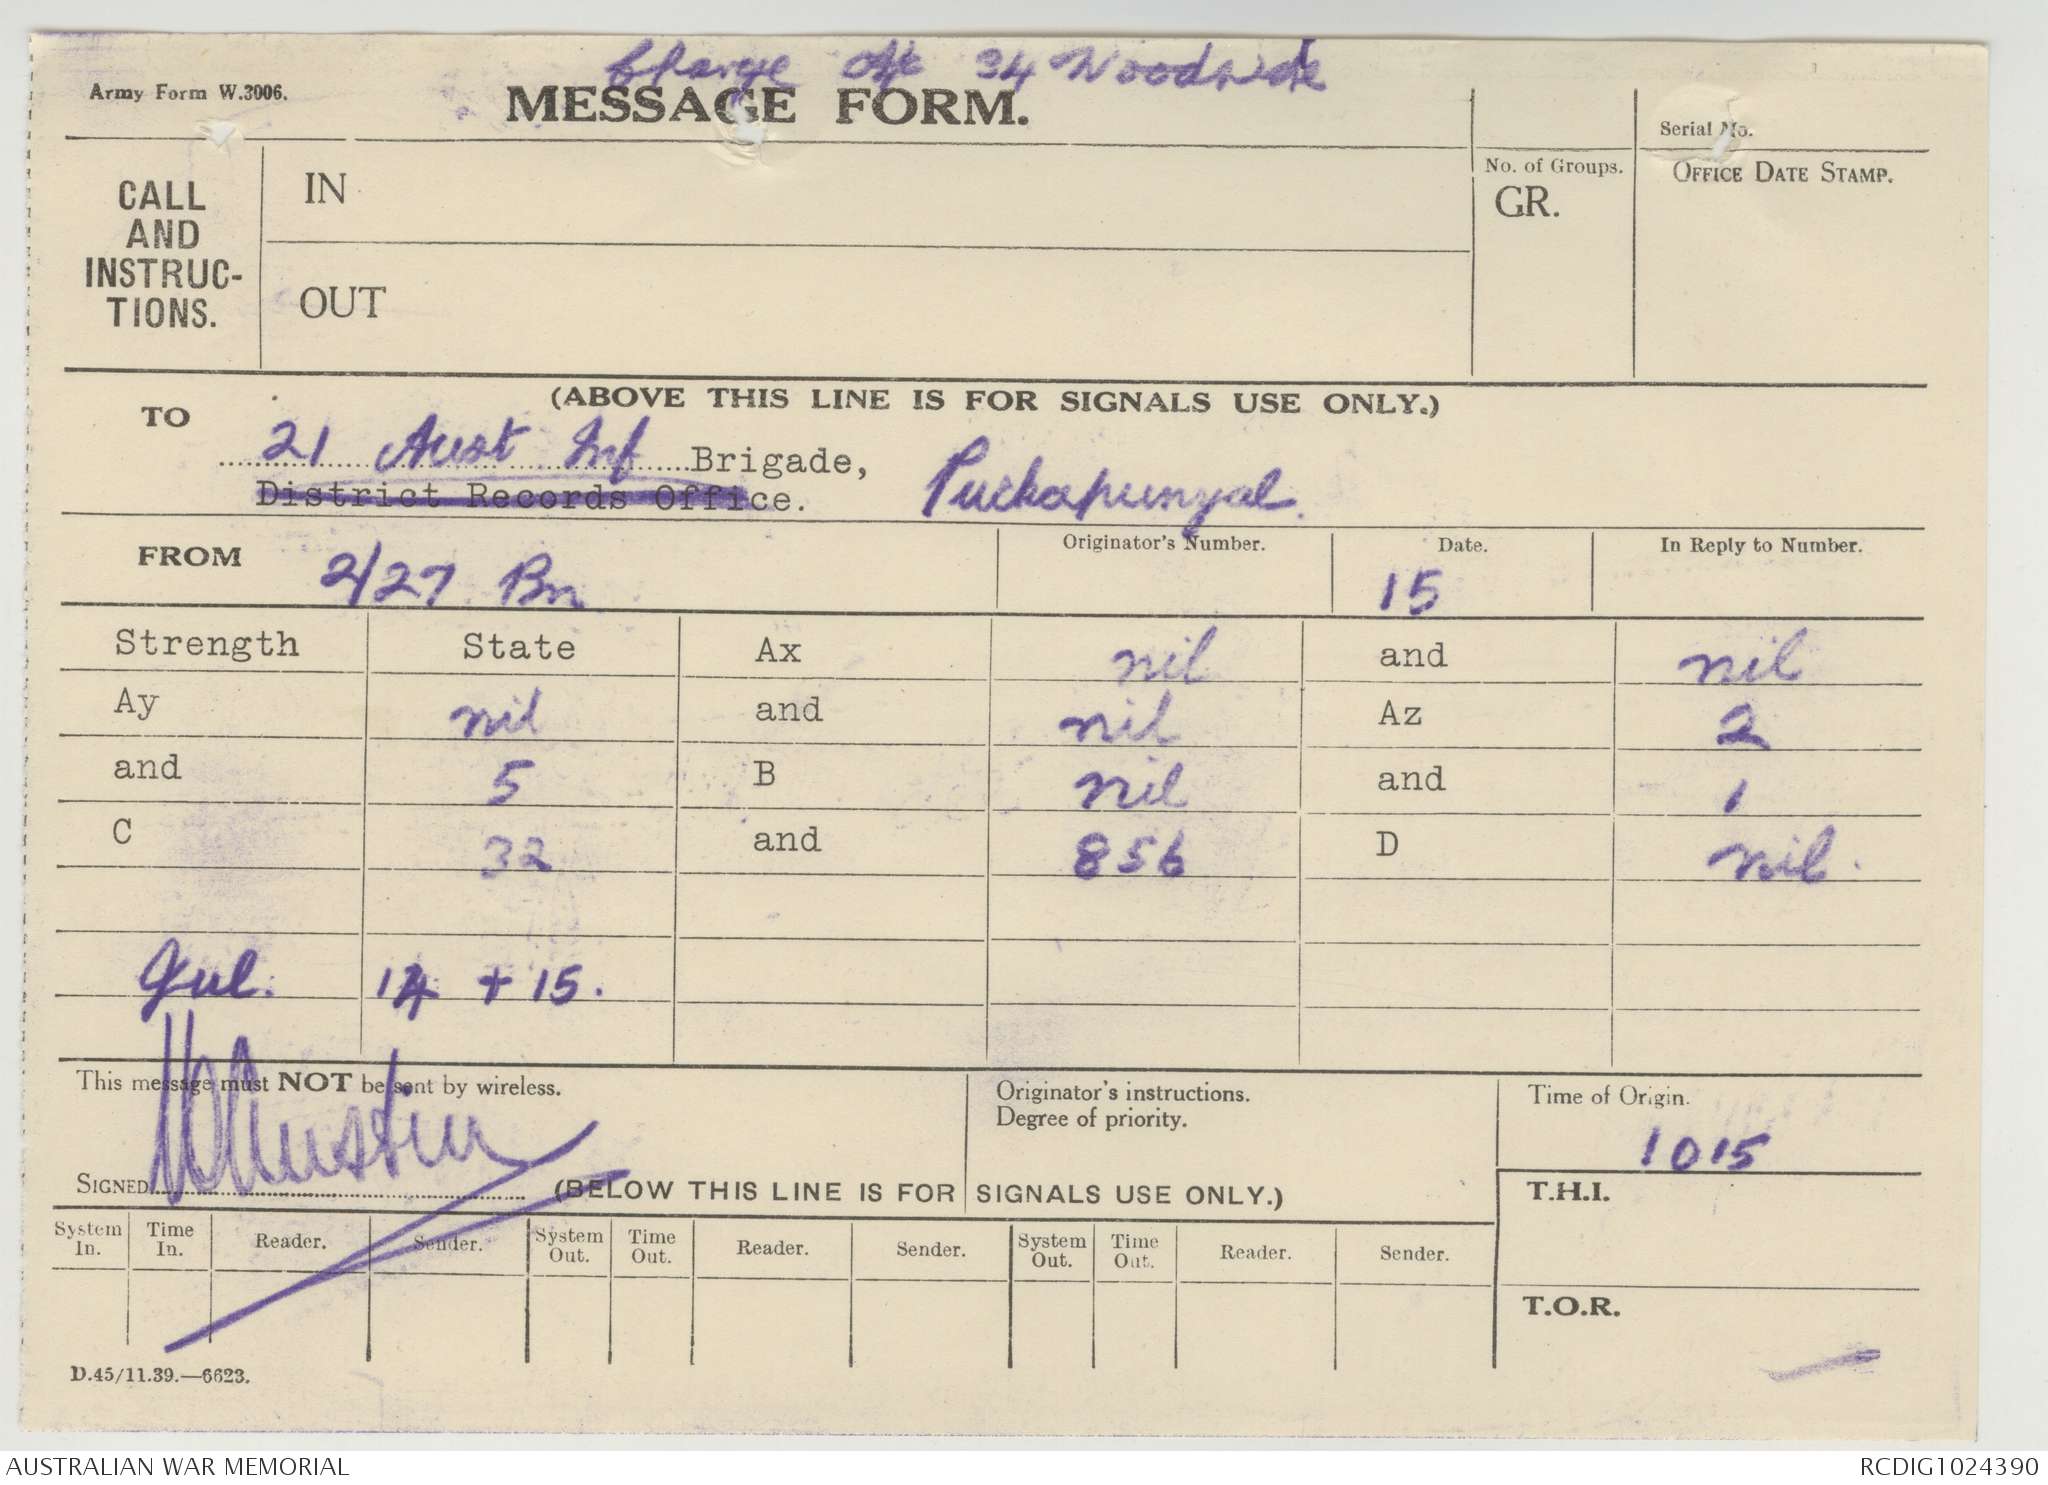 Charge a/c 34 Woodside
Army Form W.3006.
MESSAGE FORM.
Serial No.
CALL
AND
INSTRUC-
TIONS.
IN
OUT
No. of Groups.
GR.
OFFICE DATE STAMP.
(ABOVE THIS LINE IS FOR SIGNALS USE ONLY.)
TO
21 Aust Inf Brigade, Puckapunyal.
District Records Office.
FROM 2/27 Bn
Originator's Number.
Date.
15
In Reply to Number.
Strength State Ax nil and nil
Ay nil and nil Az 2
and 5 B nil and 1
C 32 and 856 D nil.
Jul. 14 + 15.
This message must NOT be sent by wireless.
SIGNED
Originator's instructions.
Degree of priority.
Time of Origin.
1015
(BELOW THIS LINE IS FOR SIGNALS USE ONLY.)
T.H.I.
System In. Time In. Reader. Sender. System Out. Time Out. Reader. Sender. System Out. Time Out. Reader. Sender.
T.O.R.
D.45/11.39.—6623.
AUSTRALIAN WAR MEMORIAL
RCDIG1024390